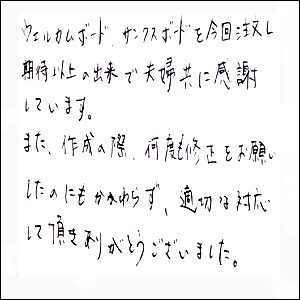 ウェルカムボード、サンクスボードを今回注文し
期待以上の出来で夫婦共に感謝
しています。
また、作成の際、何度も修正をお願い
したのにもかかわらず、適切な対応
して頂きありがとうございました。